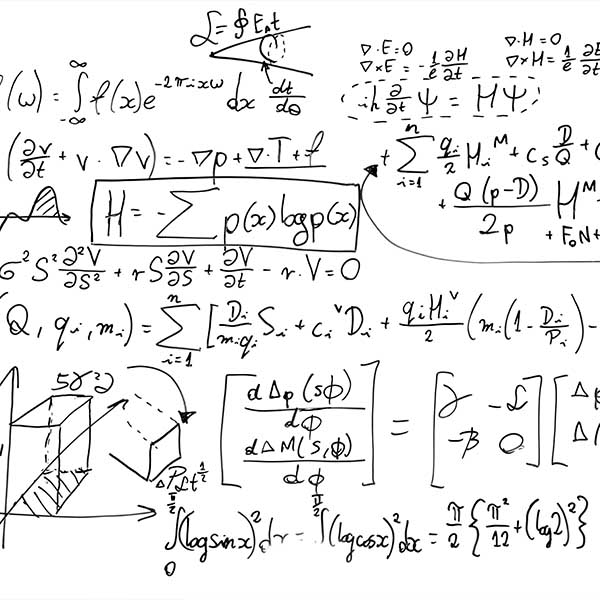 L = ∮ E_A t
∇·E = 0
∇·H = 0
∇×E = -1/e ∂H/∂t
∇×H = 1/e ∂E
(ω) = ∫_{-∞}^{∞} f(x)e^{-2πixω} dx
dt/dθ
iħ ∂/∂t Ψ = HΨ
(∂v/∂t + v·∇v) = -∇p + ∇·T + f
+ Σ_{i=1}^{n} q_i/2 H_i^M + C_S D/Q +
H = -Σ p(x) log p(x)
+ Q(p-D)/2p H^M
+ F_0 N +
σ² S² ∂²V/∂S² + rS ∂V/∂S + ∂V/∂t - r·V = 0
(Q, q_i, m_i) = Σ_{i=1}^{n} [D_i/(m_i q_i) S_i + c_i^v D_i + q_i H_i^v/2 (m_i(1 - D_i/P_i) -
[dΔp(sϕ)/dϕ
dΔM(s,ϕ)/dϕ] = [γ -L
-β 0] [Δ
Δ
∫_0^{π/2} (log sin x)² dx = ∫^{π/2} (log cos x)² dx = π/2 {π²/12 + (log 2)²}